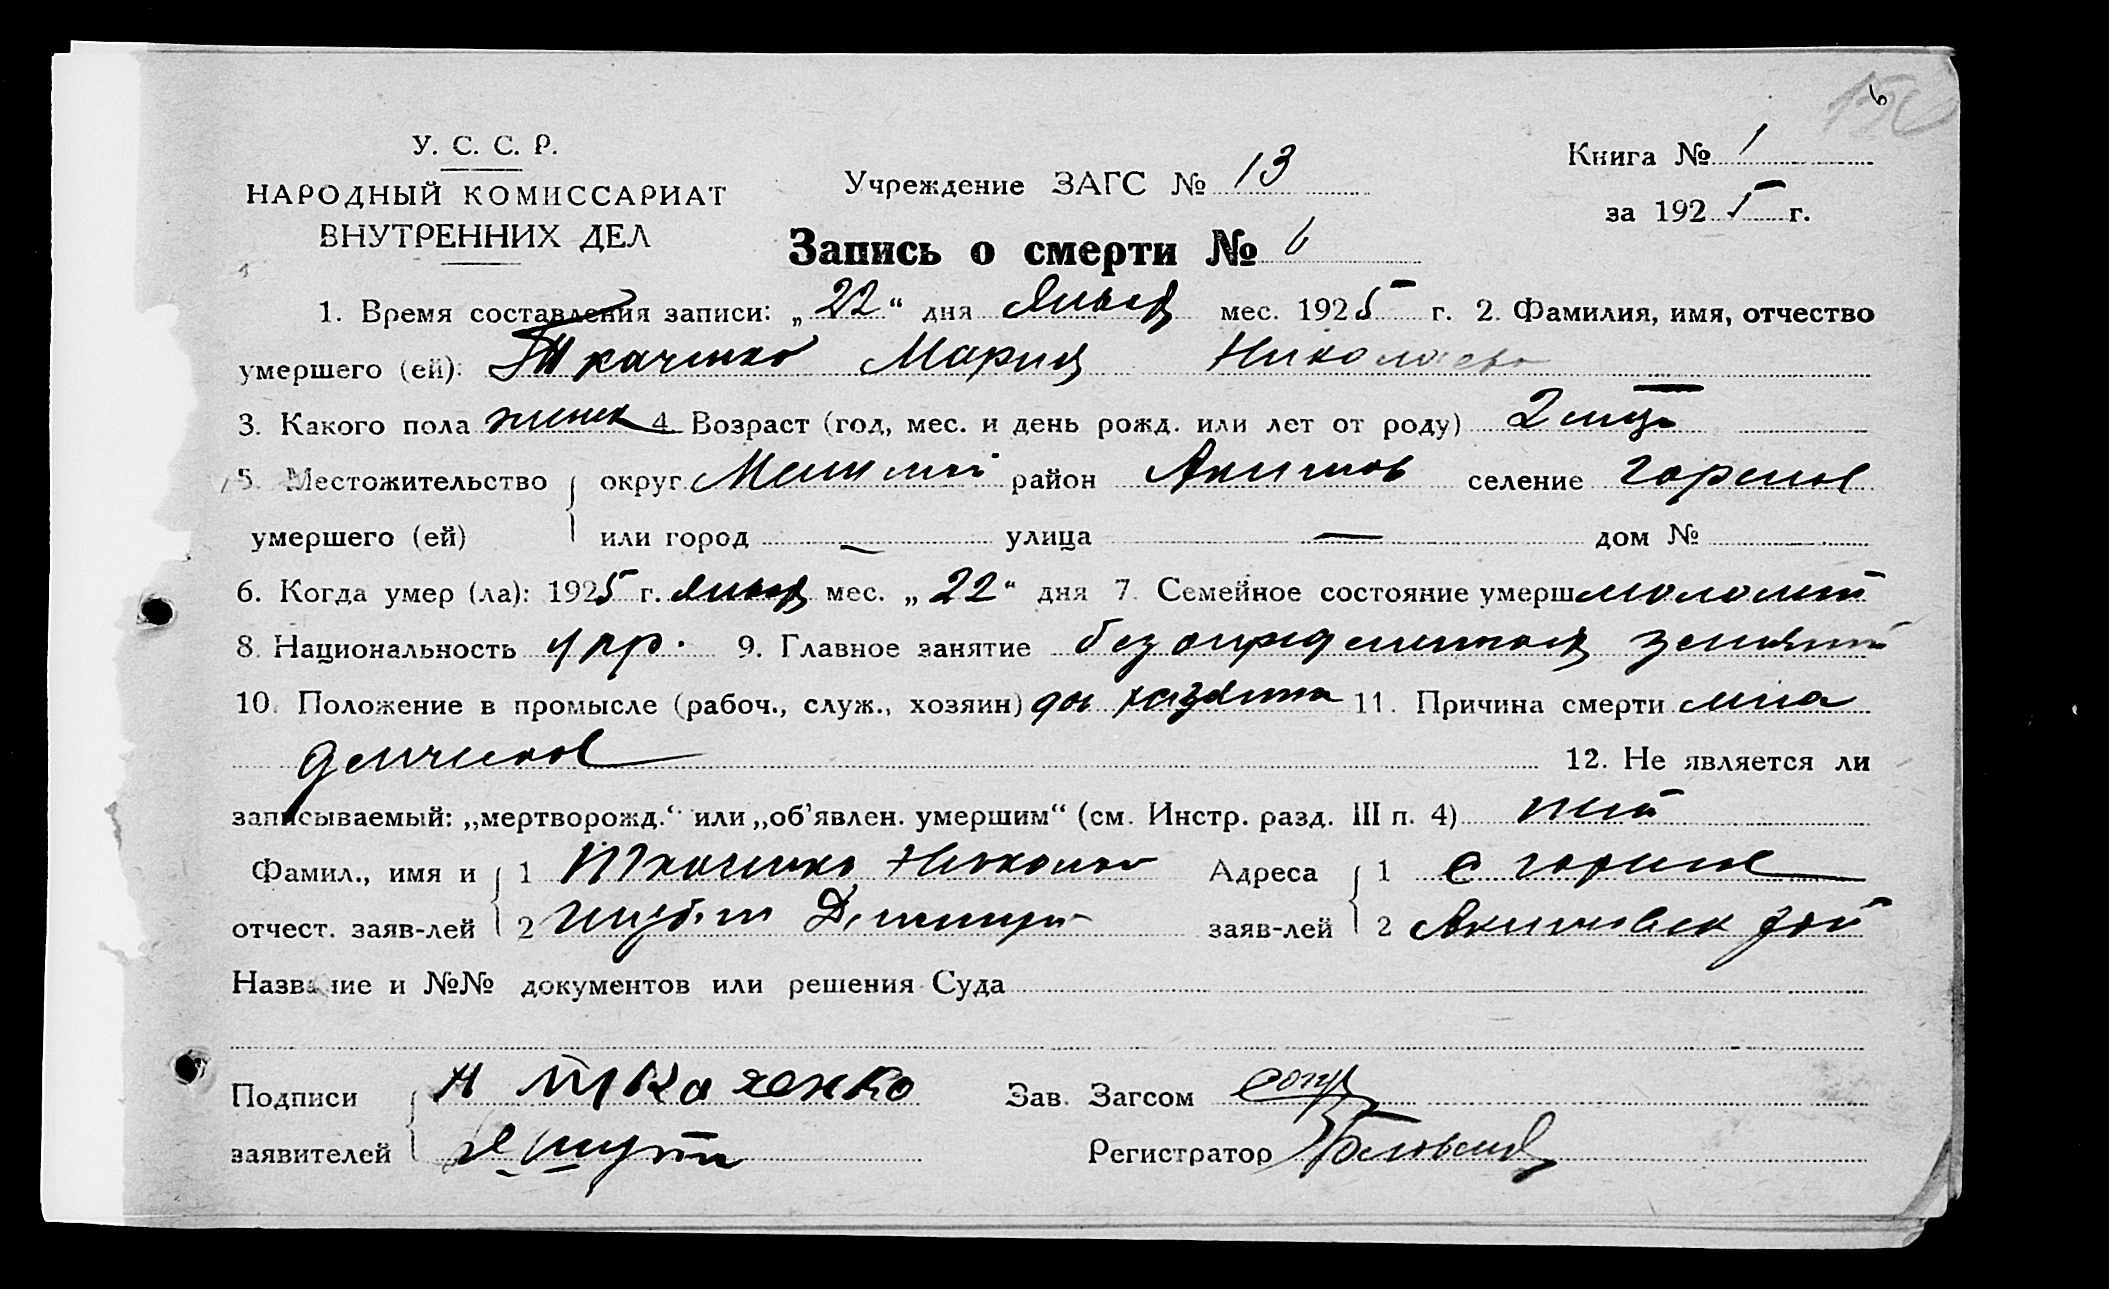 У. С. С. Р.
НАРОДНЫЙ КОМИССАРИАТ
ВНУТРЕННИХ ДЕЛ
Учреждение ЗАГС № 13
Книга № 1
за 1925 г.
6
Запись о смерти № 6
1. Время составления записи: „22“ дня Января мес. 1925 г. 2. Фамилия, имя, отчество
умершего (ей): Ткаченко Мария Николаева
3. Какого пола женск 4. Возраст (год, мес. и день рожд. или лет от роду) 2
5. Местожительство округ район Акимов селение
умершего (ей) или город — улица — дом №
6. Когда умер (ла): 1925 г. Января мес. „22“ дня 7. Семейное состояние умерш
8. Национальность укр. 9. Главное занятие без определенных занятий
10. Положение в промысле (рабоч., служ., хозяин) 11. Причина смерти мла
денческ
12. Не является ли
записываемый: „мертворожд.“ или „об’явлен. умершим“ (см. Инстр. разд. III п. 4) нет
Фамил., имя и 1 Ткаченко Николай Адреса 1 с
отчест. заяв-лей 2 Дмитри заяв-лей 2 Акимовск рай
Название и №№ документов или решения Суда
Подписи Н Ткаченко Зав. Загсом
заявителей Регистратор